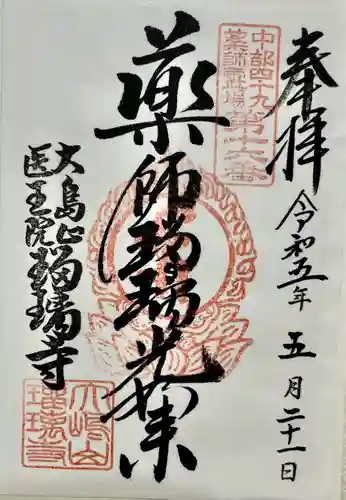 奉拝
令和五年 五月二十一日
中部四十九
薬師霊場第十六番
薬師瑠璃光如来
大島山
医王院
瑠璃寺
大嶋山
瑠璃寺